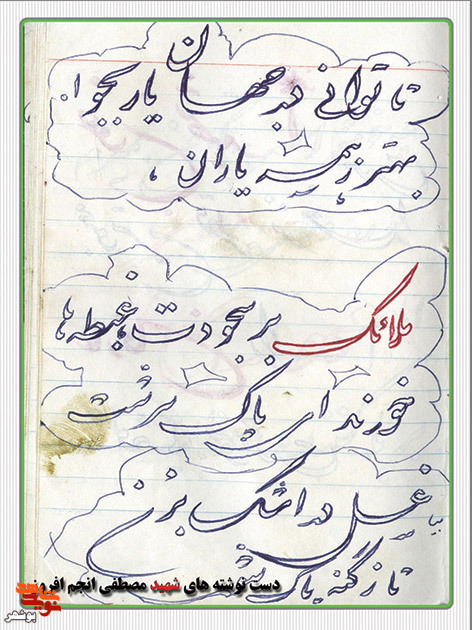 تا توانی در جهان یار بجو
بهتر ز همه یاران ،
ملائک بر سجودت غبطه ها
خورند ای پاک سرشت
غسل در اشک بزن
بیا
تا ز گنه پاک
دست نوشته های شهید مصطفی انجم افروز
نوید شاهد
بوشهر